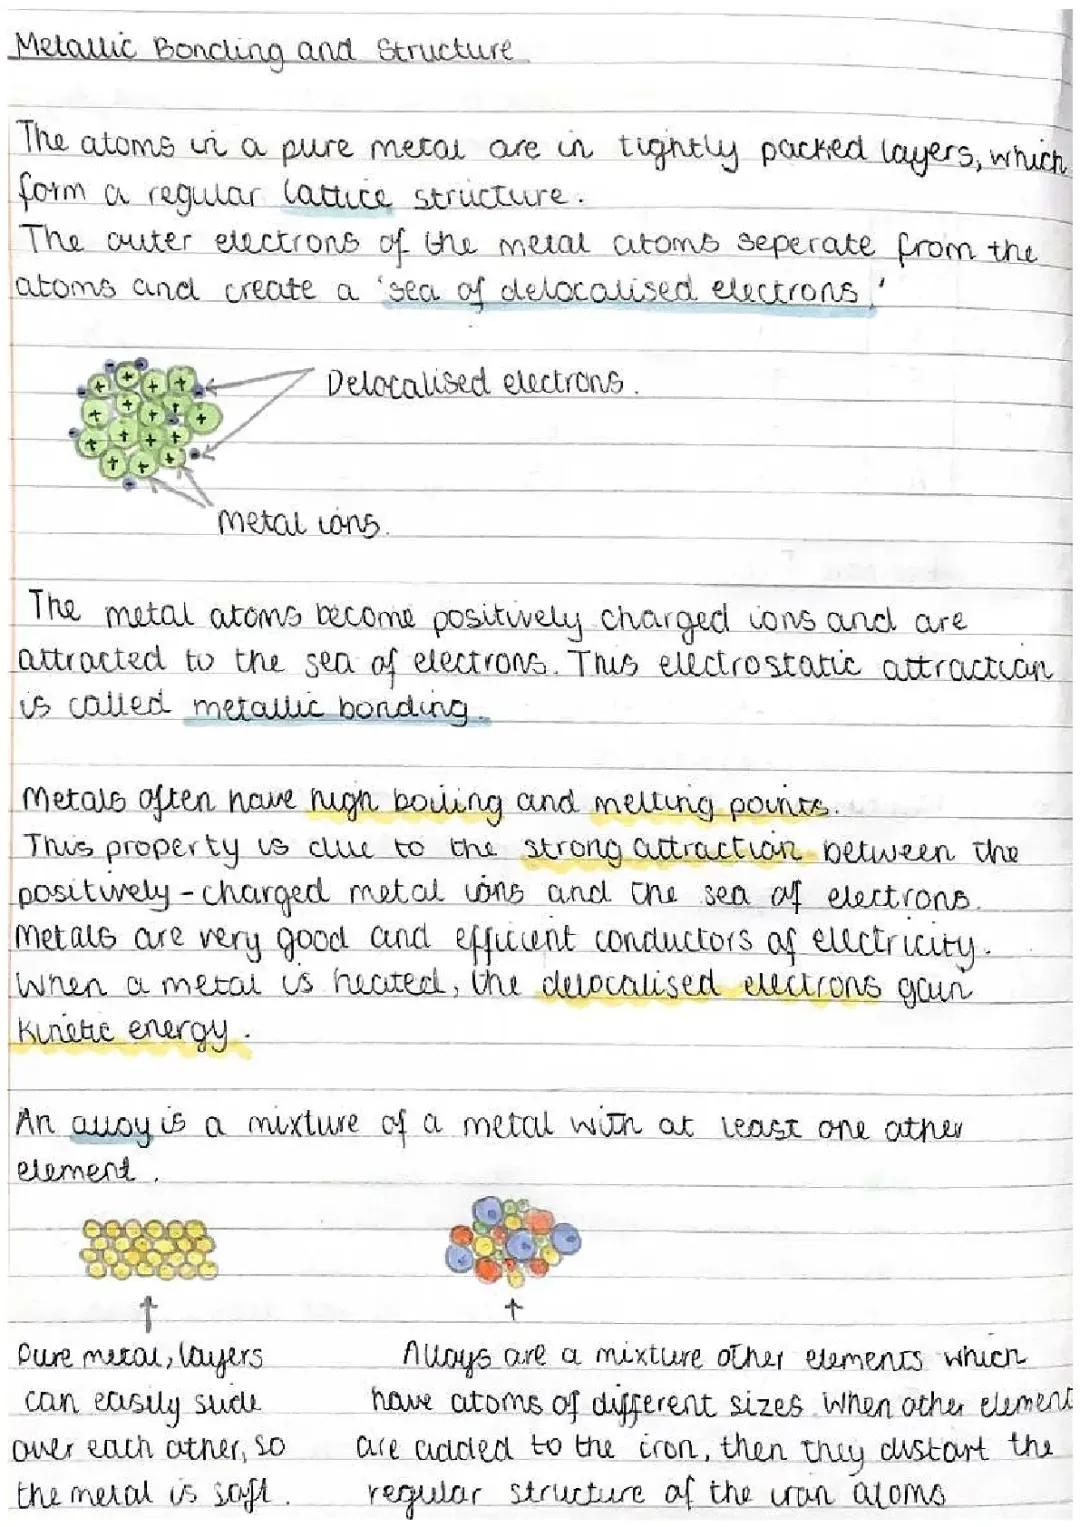 Metallic Bonding and Structure
The atoms in a pure metal are in tightly packed layers, which
form a regular lattice structure.
The outer electrons of the metal atoms seperate from the
atoms and create a 'sea of delocalised electrons.'
+ + + + + + + + + + + + + + + +
Delocalised electrons.
Metal ions.
The metal atoms become positively charged ions and are
attracted to the sea of electrons. This electrostatic attraction
is called metallic bonding.
Metals often have high boiling and melting points.
This property is due to the strong attraction between the
positively-charged metal ions and the sea of electrons.
Metals are very good and efficient conductors of electricity.
When a metal is heated, the delocalised electrons gain
kinetic energy.
An alloy is a mixture of a metal with at least one other
element.
Pure metal, layers
can easily slide
over each other, so
the metal is soft.
Alloys are a mixture other elements which
have atoms of different sizes. When other element
are added to the iron, then they distort the
regular structure of the iron atoms